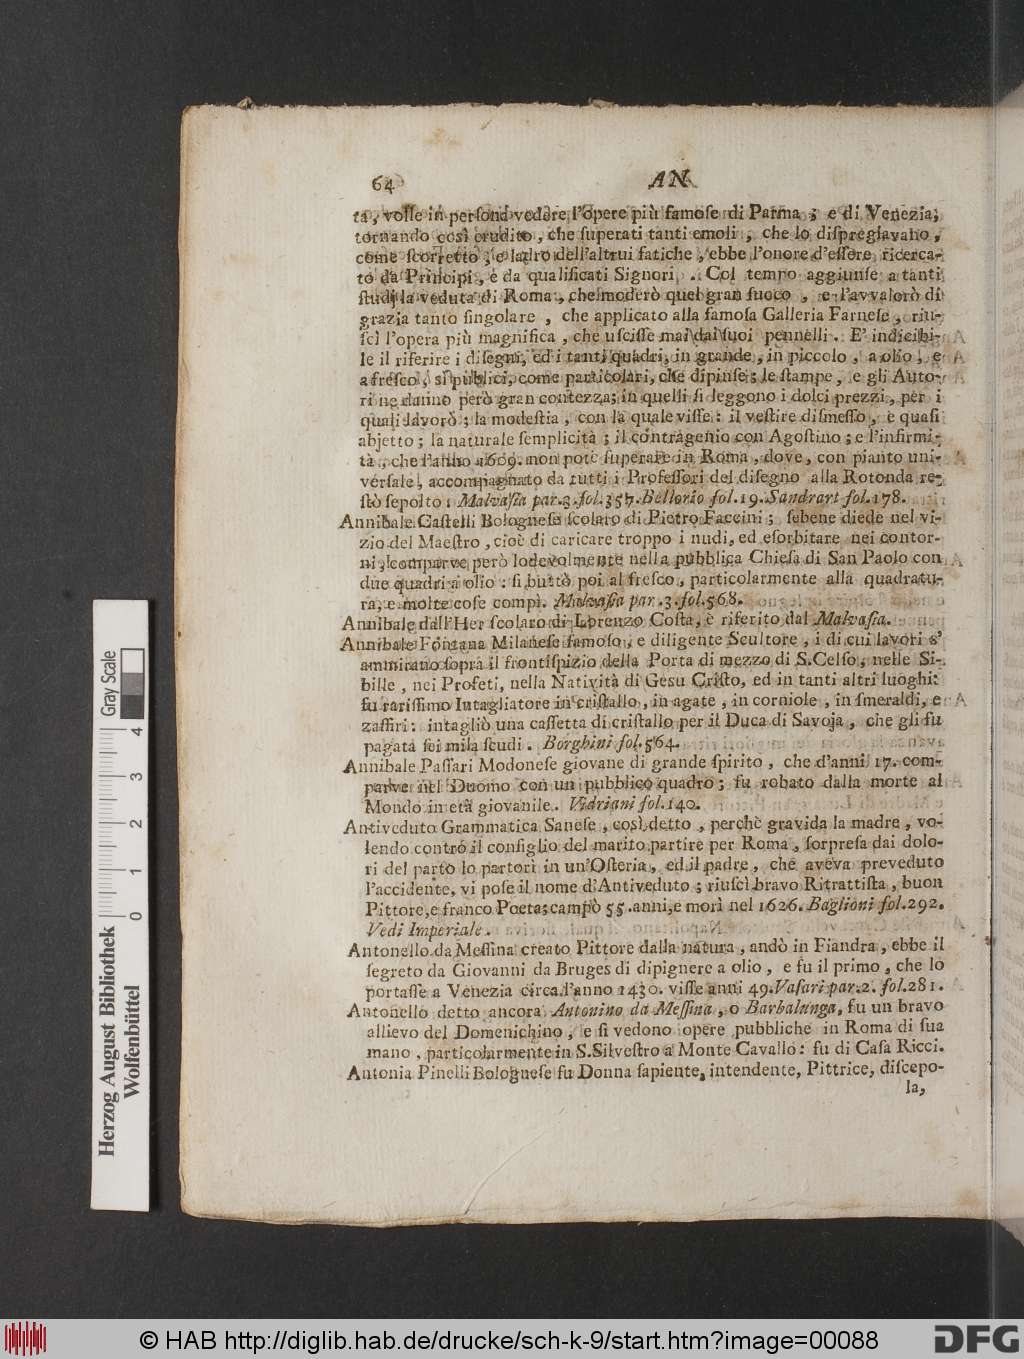 64 AN
tà, volle in persona vedere l'opere più famose di Parma; e di Venezia;
tornando così erudito, che superati tanti emoli, che lo dispregiavano,
come scorretto, e ladro dell'altrui fatiche, ebbe l'onore d'essere ricerca-
to da Principi, e da qualificati Signori. Col tempo aggiunse a tanti
studj la veduta di Roma, che moderò quel gran fuoco, e l'avvalorò di
grazia tanto singolare, che applicato alla famosa Galleria Farnese, riu-
scì l'opera più magnifica, che uscisse mai dai suoi pennelli. E' indicibi-
le il riferire i disegni, ed i tanti quadri, in grande, in piccolo, a olio, e
a fresco, si pubblici, come particolari, che dipinse; le stampe, e gli Auto-
ri ne danno però gran contezza; in quelli si leggono i dolci prezzi, per i
quali lavorò; la modestia, con la quale visse: il vestire dismesso, e quasi
abjetto; la naturale semplicità; il contragenio con Agostino; e l'infirmi-
tà, che l'anno 1609. non potè superare in Roma, dove, con pianto uni-
versale, accompagnato da tutti i Professori del disegno alla Rotonda re-
stò sepolto. Malvasia par.3.fol.357. Bellorio fol.19. Sandrart fol.178.
Annibale Castelli Bolognese scolaro di Pietro Faccini; sebene diede nel vi-
zio del Maestro, cioè di caricare troppo i nudi, ed esorbitare nei contor-
ni, comparve però lodevolmente nella pubblica Chiesa di San Paolo con
due quadri a olio: si buttò poi al fresco, particolarmente alla quadratu-
ra, e molte cose compì. Malvasia par.3.fol.568.
Annibale dall'Her scolaro di Lorenzo Costa, è riferito dal Malvasia.
Annibale Fontana Milanese famoso, e diligente Scultore, i di cui lavori s'
ammirano sopra il frontispizio della Porta di mezzo di S.Celso, nelle Si-
bille, nei Profeti, nella Natività di Gesu Cristo, ed in tanti altri luoghi:
fu rarissimo Intagliatore in cristallo, in agate, in corniole, in smeraldi, e
zaffiri: intagliò una cassetta di cristallo per il Duca di Savoja, che gli fu
pagata sei mila scudi. Borghini fol.564.
Annibale Passari Modonese giovane di grande spirito, che d'anni 17. com-
parve nel Duomo con un pubblico quadro; fu robato dalla morte al
Mondo in età giovanile. Vidriani fol.140.
Antiveduto Grammatica Sanese, così detto, perchè gravida la madre, vo-
lendo contro il consiglio del marito partire per Roma, sorpresa dai dolo-
ri del parto lo partorì in un'Osteria, ed il padre, che aveva preveduto
l'accidente, vi pose il nome d'Antiveduto; riuscì bravo Ritrattista, buon
Pittore, e franco Poeta; campò 55. anni, e morì nel 1626. Baglioni fol.292.
Vedi Imperiale.
Antonello da Messina creato Pittore dalla natura, andò in Fiandra, ebbe il
segreto da Giovanni da Bruges di dipignere a olio, e fu il primo, che lo
portasse a Venezia circa l'anno 1430. visse anni 49. Vasari par.2. fol.281.
Antonello detto ancora Antonino da Messina, o Barbalunga, fu un bravo
allievo del Domenichino, e si vedono opere pubbliche in Roma di sua
mano, particolarmente in S.Silvestro a Monte Cavallo: fu di Casa Ricci.
Antonia Pinelli Bolognese fu Donna sapiente, intendente, Pittrice, discepo-
la,
Gray Scale
0 1 2 3 4
Herzog August Bibliothek
Wolfenbüttel
© HAB http://diglib.hab.de/drucke/sch-k-9/start.htm?image=00088
DFG